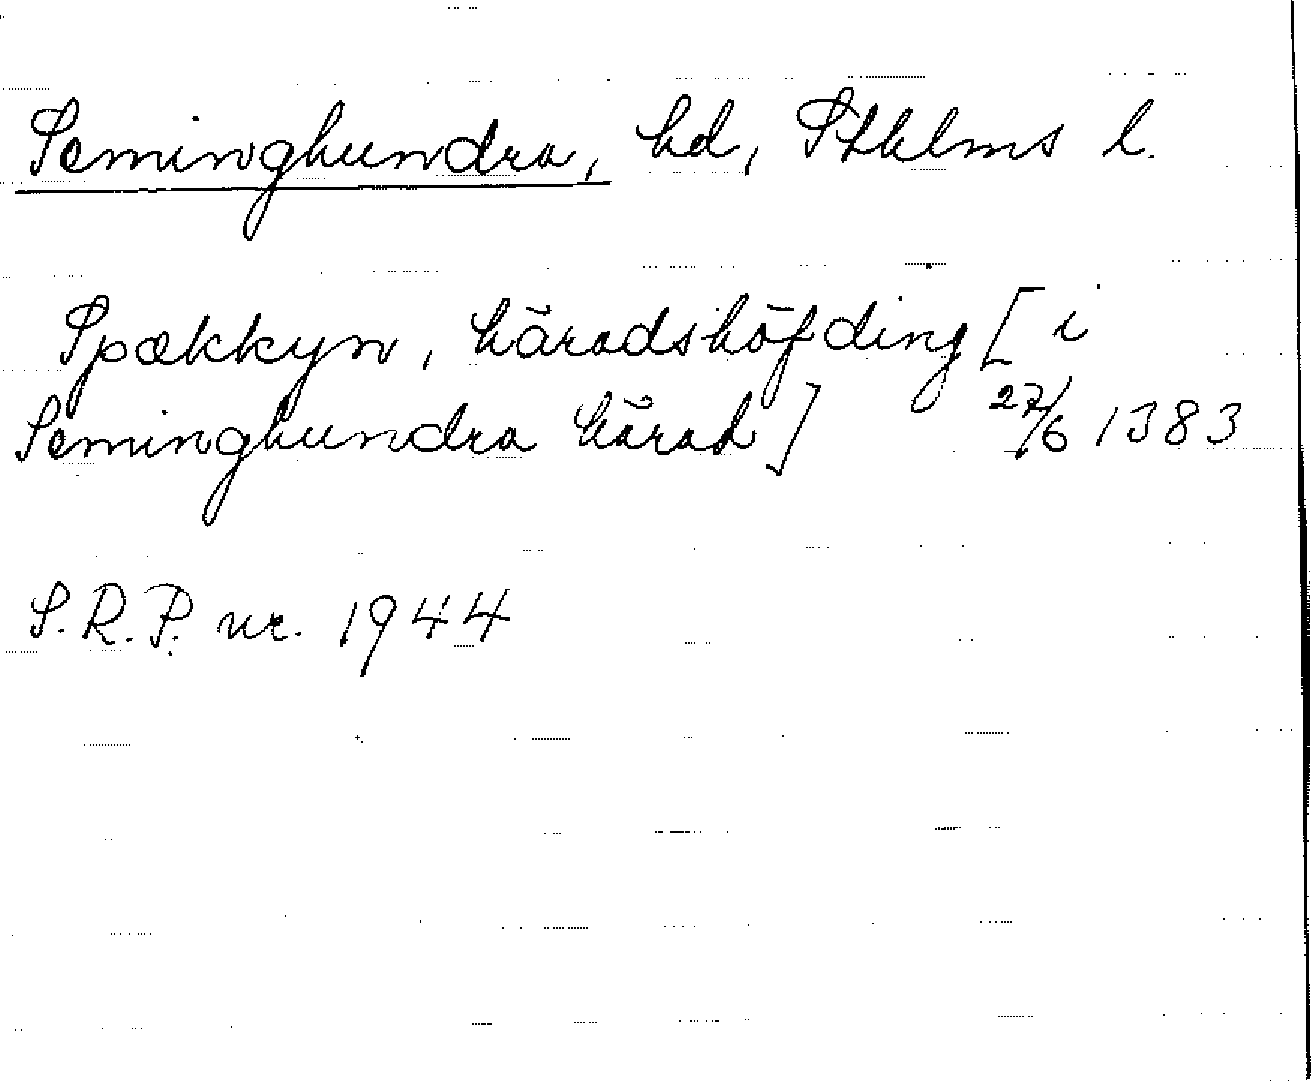 Seminghundra, hd, Sthlms l.
Spækkyn, häradshöfding [i
Seminghundra härad] 27/6 1383
S.R.P. nr. 1944